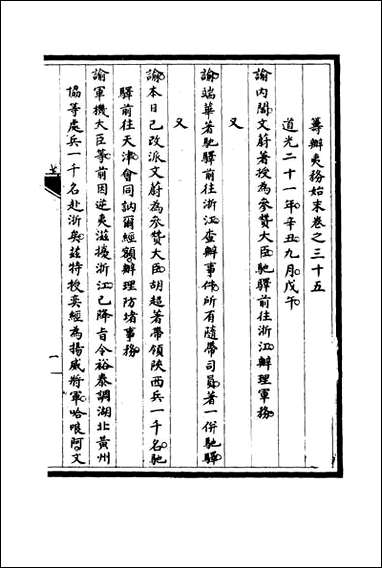 籌辦夷務始末卷之三十五
道光二十一年辛丑九月戊午
諭内閣文蔚著授為參贊大臣馳驛前往浙江辦理軍務
又
諭端華著馳驛前往浙江查辦事件所有隨帶司員著一併馳驛
又
諭本日已改派文蔚為參贊大臣胡超著帶領陝西兵一千名馳
驛前往天津會同訥爾經額辦理防堵事務
諭軍機大臣等前因逆夷滋擾浙江已降旨令裕泰調湖北黃州
協等處兵一千名赴浙矣茲特授奕經為揚威將軍哈哴阿文
一